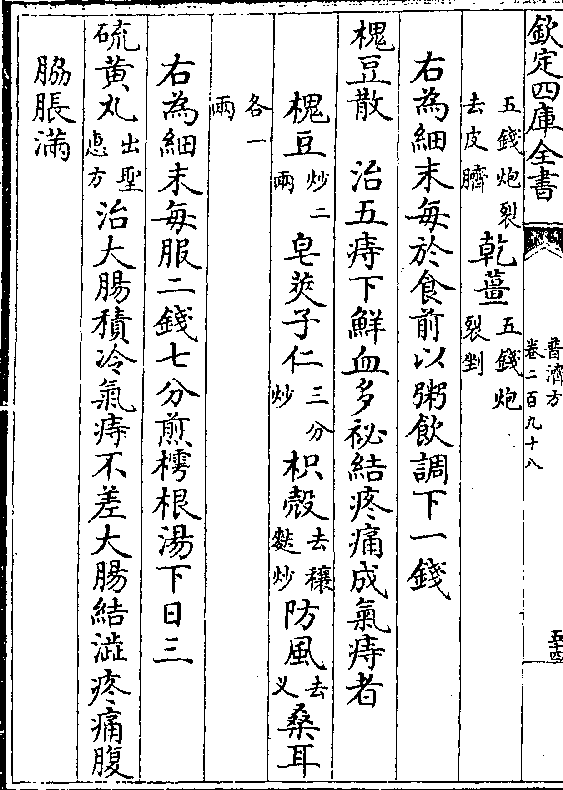 欽定四庫全書
普濟方
卷二百九十八
五十四
五錢炮裂
去皮臍
乾薑五錢炮
裂剉
右為細末每於食前以粥飲調下一錢
槐豆散　治五痔下鮮血多祕結疼痛成氣痔者
槐豆炒二
兩　皂莢子仁三分
炒　枳殼去穰
麩炒　防風去
义　桑耳
各一
兩
右為細末每服二錢七分煎樗根湯下日三
硫黃丸出聖
惠方　治大腸積冷氣痔不差大腸結澁疼痛腹
脇脹滿